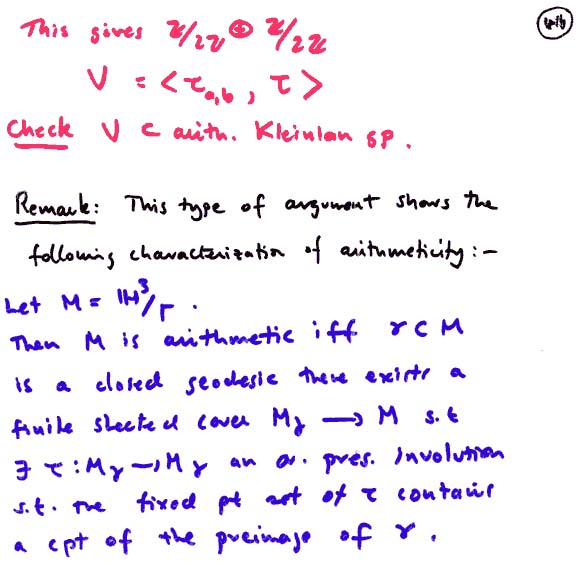 This gives ℤ/2ℤ ⊕ ℤ/2ℤ
V = <τ_{a,b}, τ>
Check V ⊂ arith. Kleinian gp.
Remark: This type of argument shows the
following characterization of arithmeticity:-
Let M = ℍ³/Γ.
Then M is arithmetic iff γ ⊂ M
is a closed geodesic there exists a
finite sheeted cover M_γ → M s.t
∃ τ: M_γ → M_γ an or. pres. involution
s.t. the fixed pt set of τ contains
a cpt of the preimage of γ.